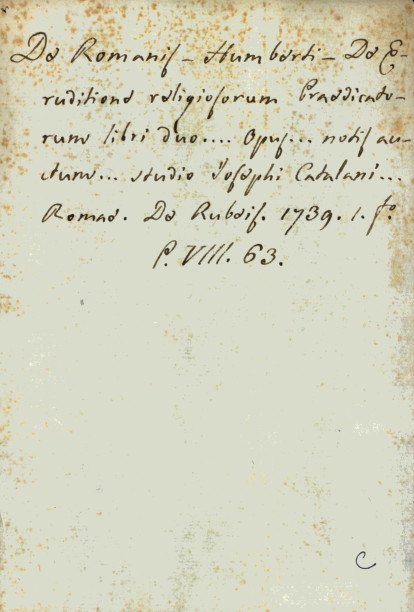 De Romanis - Humberti - De E-
ruditione religiosorum Praedicato-
rum libri duo.... Opus... notis au-
ctum... studio Josephi Catalani...
Romae. De Rubeis. 1739. 1. fo.
P. VIII. 63.
C